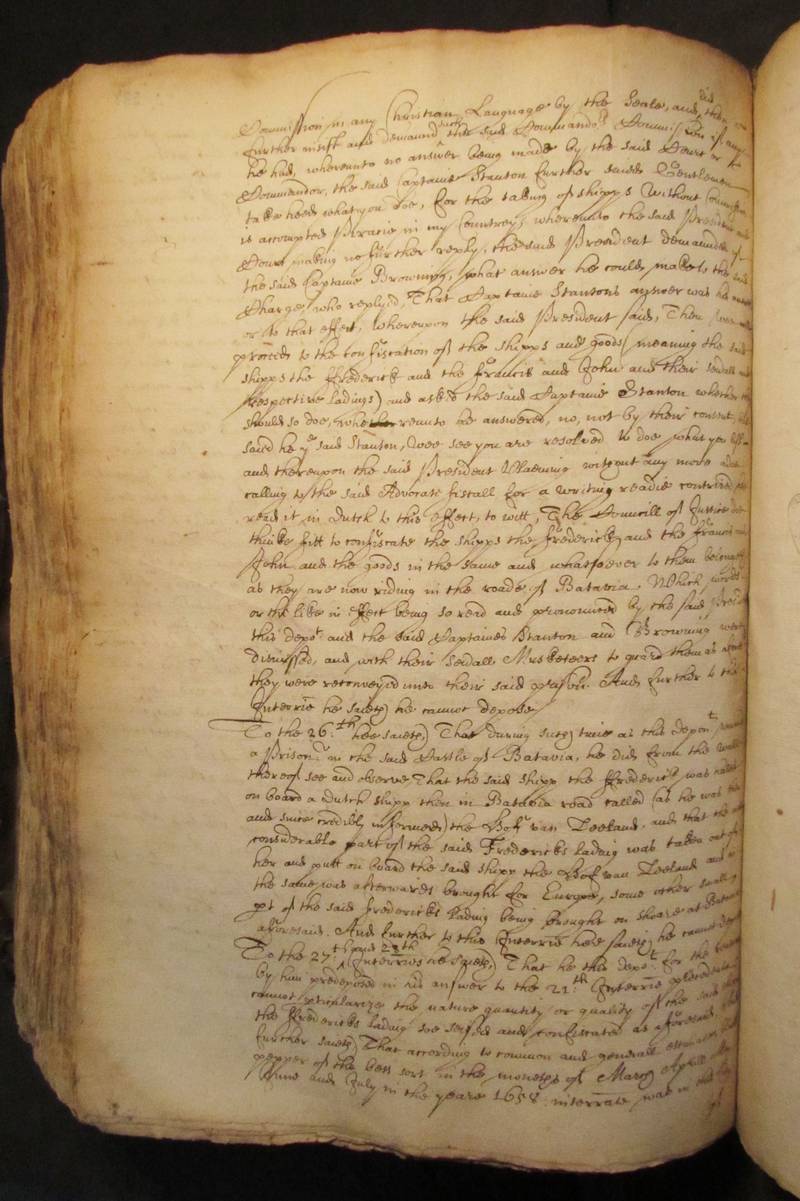 Commission in any Christian Language by the Seale, and did then
further insist and demaund such the said Commando:rs Commission if any
he had, whereunto no answer being made by the said Court or the
Commandor, the said Captaine Stanton further saied Gentlemen
take heed what you doe, for the taking of shipps without Commission
is accompted Piracie in my Countrey, whereunto the said President and
Court making no further reply, the said President demaunded of
the said Captaine Browning, what answer he could make to the said
Charge, who replyed, That Captaine Stantons answer was his
or to that effect, Whereupon the said President said, Then
proceed to the confiscation of the shipps and goods (meaning the said
shipps the Frederick and the Francis and John and their severall and
respective ladings) and asked the said Captaine Stanton whether
should so doe, whereunto he answered, no, not by their consent,
said he ye said Stanton, Wee see you are resolved to doe what you
and thereupon the said President Vlaming without any more adoe
calling to the said Advocate fiscall for a writing readie contrived
read it in dutch to this effect, to witt, The Councill of Justice doe
thinke fitt to confiscate the shipps the Frederick, and the Francis and
John and the goods in the same and whatsoever to them belonging
as they are now riding in the roade of Batavia. Which words
or the like in effect being so read and pronounced by the said President
this depot and the said Captaines Stanton and Browning were
dismissed, and with their severall Musketeers to guard them as aforesaid
they were reconveyed unto their said prison. And further to this
Interrie he saieth he cannot depose
To the 26:th hee saieth, That during such time as this depont
a Prisoner in the said Castle of Batavia, he did from the Walls
thereof see and observe That the said shipp the Frederick was haled
on board a dutch shipp then in Batavia road called (as he was then
and since credibly informed) the Hof van Zeeland, and that the
considerable part of the said Fredericks lading was taken out of
her and putt on board the said shipp the Hof van Zeeland and
the same was afterwards brought for Europe, some other small
pt of the said Fredericks lading being brought on shoare at Batavia
aforesaid. And further to this Interrie hee saieth he cannot depose
To the 27:th and 28th Interries he saieth, That he this depot for the
by him predeposed in his answer to the 21:th Interrie
cannot particularize the nature quantity or quality of the said
the Fredericks lading soe seised and confiscated as aforesaid,
further saieth That according to common and generall
pepper of the best sort in the moneths of March Aprill
June and July in the yeare 1658 interrate was in